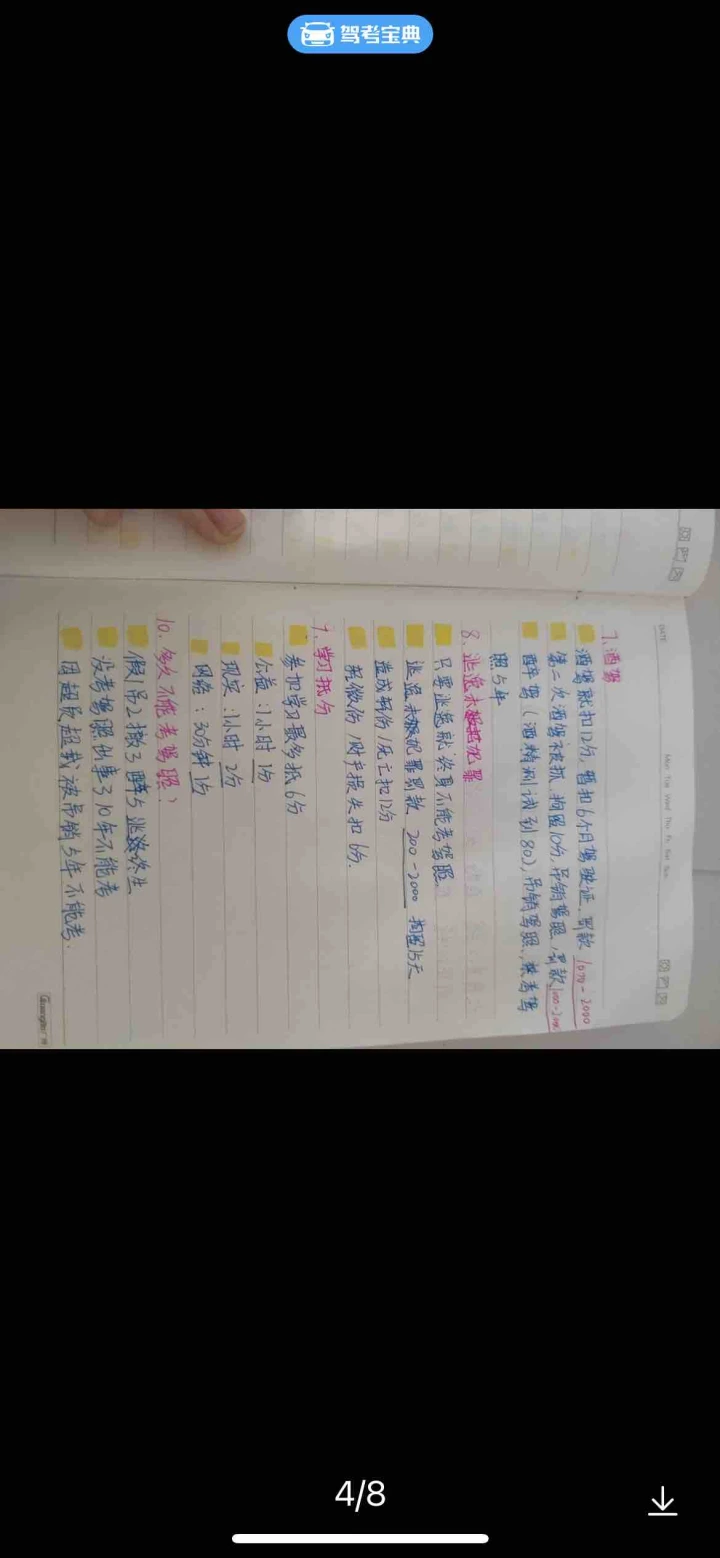 驾考宝典
DATE
Mon Tue Wed Thu Fri Sat Sun
7、酒驾
酒驾就扣12分，暂扣6个月驾驶证，罚款 1000-2000
第二次酒驾被抓，拘留10分，吊销驾照，罚款1000-2000
醉驾（酒精测试到80），吊销驾照，禁考驾
照5年
8、逃逸未 犯罪
只要逃逸就终身不能考驾照
逃逸未 犯罪罚款 200-2000 拘留15天
造成轻伤/死亡扣12分
轻微伤，财产损失扣6分.
9、学习抵分
参加学习最多抵6分
公益：1小时1分
现实：1小时2分
网络：30分钟1分
10.多久不能考驾照？
假1吊2撤3醉5逃终生
没考驾照出事310年不能考
因超员超载被吊销5年不能考.
Guangbo
4/8